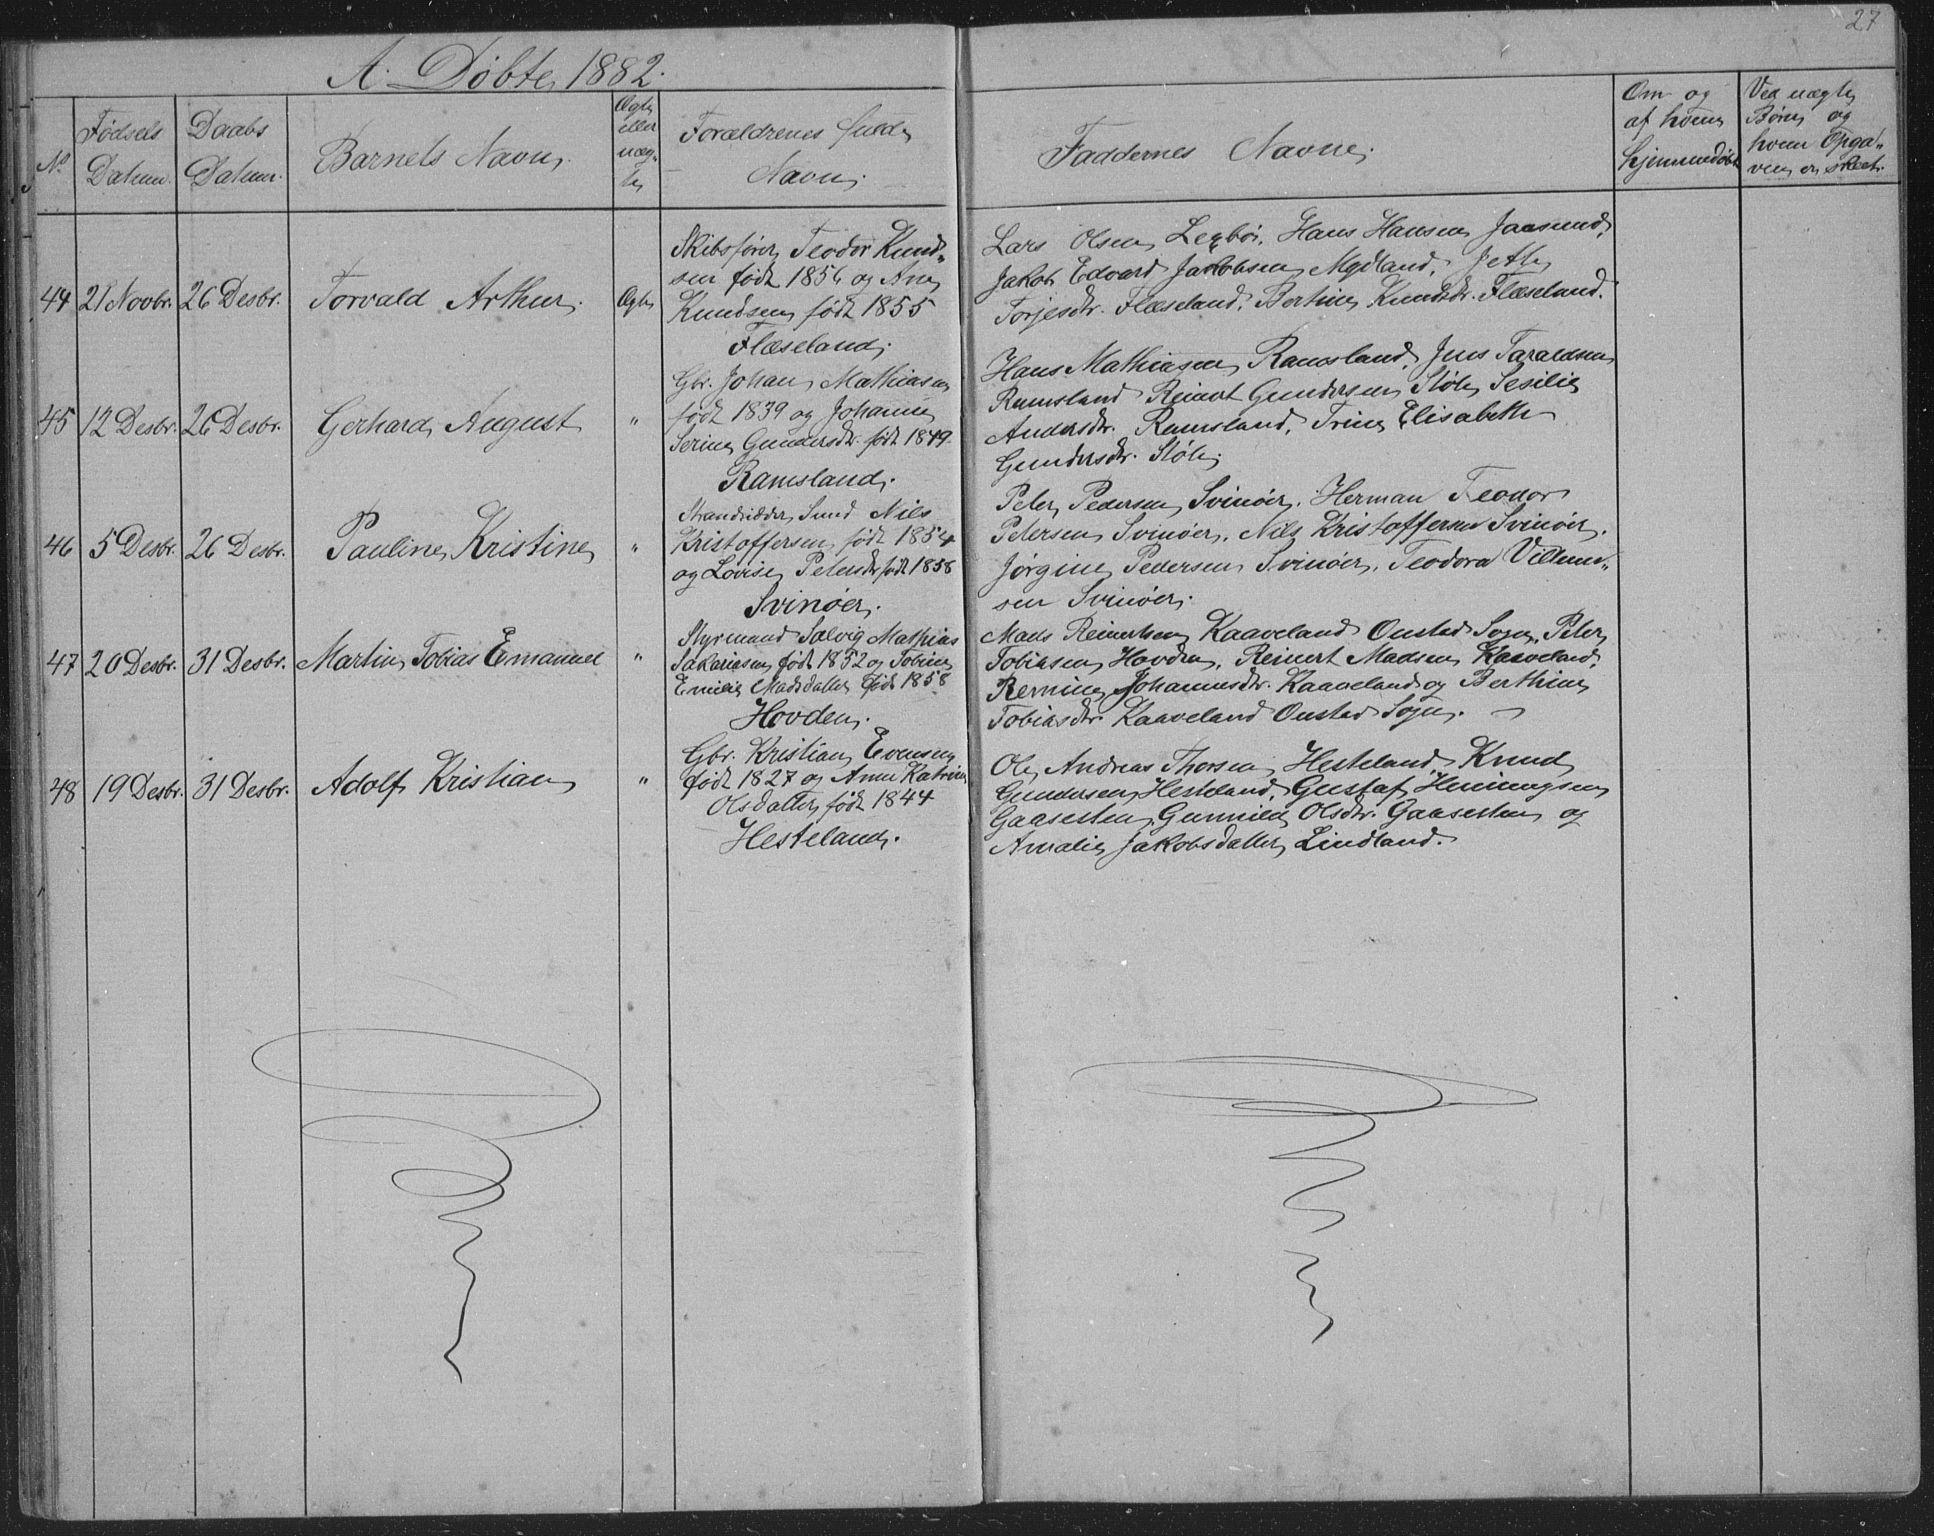 27
A. Døbte 1882.
No
Fødsels Datum.
Daabs Datum.
Barnets Navn.
Ægte eller uæg- te
Forældrenes fulde Navn.
Faddernes Navne.
Om og af hvem hjemmedøbt
Ved uægte Børn og hvem Opga- ven er skeet.
44 21 Novbr. 26 Desbr. Torvald Arthur. Ægte
Skibsfører Teodor Knud-
sen født 1856 og Ane
Knudsen født 1855
Flæseland.
Lars Olsen Legbø, Hans Hansen Jaasund,
Jakob Edvard Jakobsen Mydland,
Torjesdtr. Flæseland, Bertine Knudsdtr. Flæseland.
45 12 Desbr. 26 Desbr. Gerhard August "
Gbr. Johan Mathiasen
født 1839 og Johanne
Serine Gundersdtr. født 1849.
Ramsland.
Hans Mathiasen Ramsland, Jens Taraldsen
Ramsland Reinert Gundersen Støle, Sesilie
Andersdtr. Ramsland, Trine Elisabeth
Gundersdtr. Støle.
46 5 Desbr. 26 Desbr. Pauline Kristine "
Strandsidder Smed Nils
Kristoffersen født 1854
og Lovise Petersdtr født 1858
Svinøer.
Peter Pedersen Svinøer, Herman Teodor
Petersen Svinøer, Nils Kristoffersen Svinøer,
Jørgine Pedersen Svinøer, Teodora Villum-
sen Svinøer.
47 20 Desbr. 31 Desbr. Martin Tobias Emanuel "
Styrmand Salvig Mathias
Sakariasen født 1852 og Tobine
Emilie Madsdatter født 1858
Hovden.
Mads Reinertsen Kaaveland Ousted Sogn, Peter
Tobiasen Hovden, Reinert Madsen Kaaveland,
Johannesdtr. Kaaveland og Berthine
Tobiasdtr. Kaaveland Ousted Sogn.
48 19 Desbr. 31 Desbr. Adolf Kristian "
Gbr. Kristian Evensen
født 1827 og Anne Katrine
Olsdatter født 1844
Hesteland.
Ole Andreas Thorsen Hesteland Knud
Gundersen Hesteland, Gustaf Henningsen
Gaaseston, Gunnild Olsdtr. Gaaseston og
Amalie Jakobsdatter Lindland.